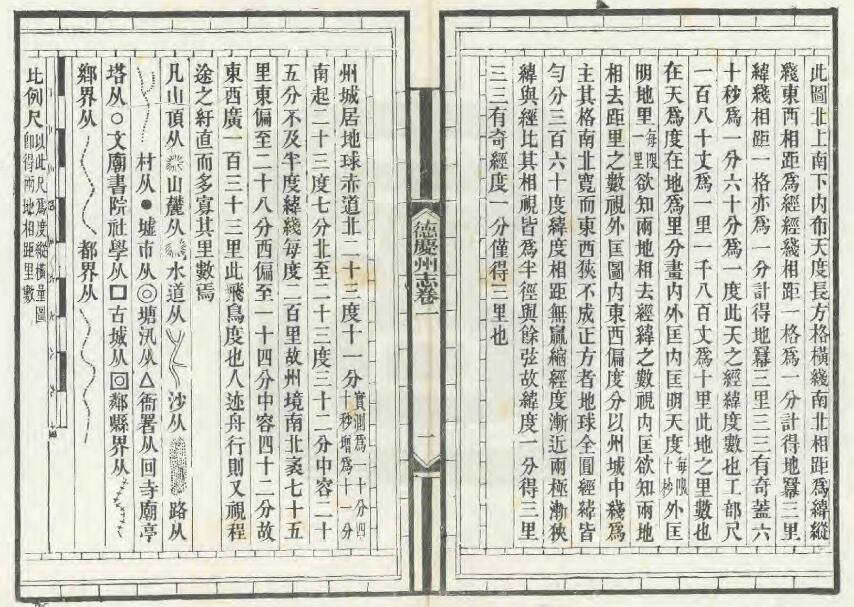 此圖北上南下內布天度長方格橫綫南北相距爲緯縱
綫東西相距爲經經綫相距一格爲一分計得地羃三里
緯綫相距一格亦爲一分計得地羃三里三三有奇蓋六
十秒爲一分六十分爲一度此天之經緯度數也工部尺
一百八十丈爲一里一千八百丈爲十里此地之里數也
在天爲度在地爲里分畫內外匡內匡明天度每限十秒外匡
明地里每限一里欲知兩地相去經緯之數視內匡欲知兩地
相去距里之數視外匡圖內東西偏度分以州城中綫爲
主其格南北寬而東西狹不成正方者地球全圓經緯皆
勻分三百六十度緯度相距無贏縮經度漸近兩極漸狹
緯與經比其相視皆爲半徑與餘弦故緯度一分得三里
三三有奇經度一分僅得三里也
德慶州志卷一
一
州城居地球赤道北二十三度十一分實測爲一十分四十秒增爲十一分
南起二十三度七分北至二十三度三十二分中容二十
五分不及半度緯綫每度二百里故州境南北袤七十五
里東偏至二十八分西偏至一十四分中容四十二分故
東西廣一百三十三里此飛鳥度也人迹舟行則又視程
途之紆直而多寡其里數焉
凡山頂从山麓从水道从沙从路从
村从●墟市从◎塘汛从△衙署从回寺廟亭
塔从○文廟書院社學从口古城从回鄰縣界从
鄉界从都界从
比例尺以此尺爲度縱橫量圖卽得兩地相距里數